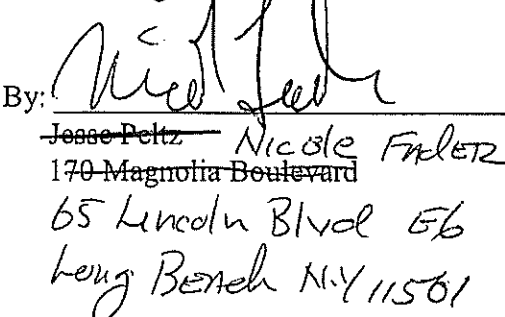 By:
Jesse Peltz Nicole Fader
170 Magnolia Boulevard
65 Lincoln Blvd E6
Long Beach N.Y 11501